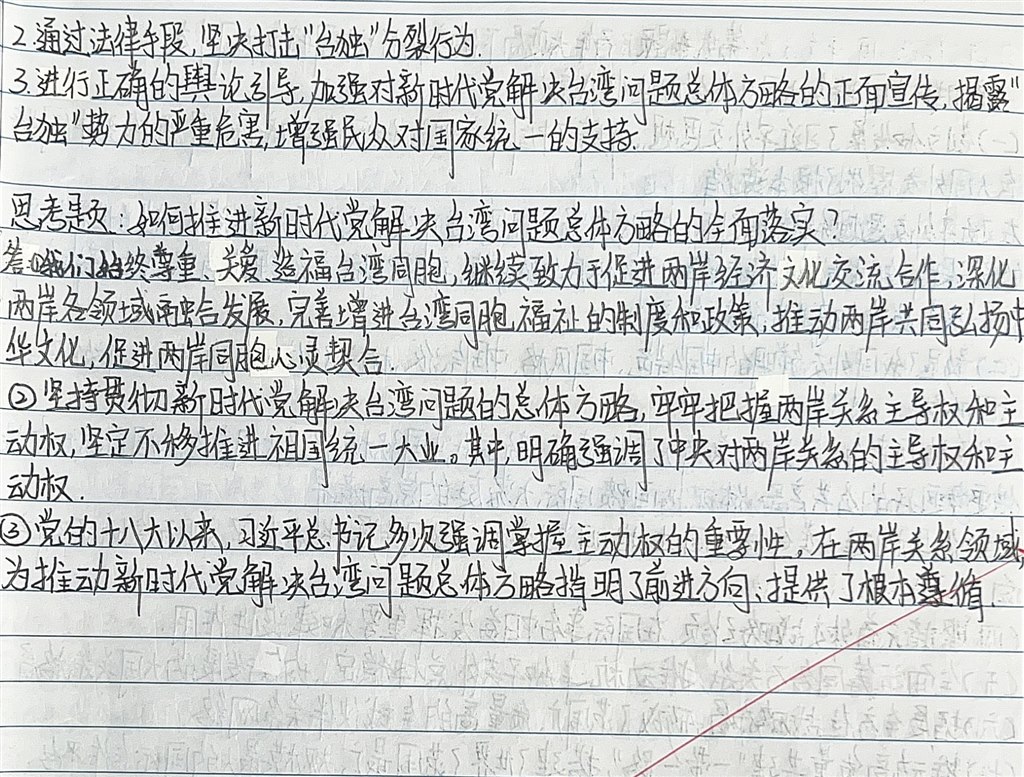 2.通过法律手段,坚决打击"台独"分裂行为.
3.进行正确的舆论引导,加强对新时代党解决台湾问题总体方略的正面宣传,揭露"
台独"势力的严重危害,增强民众对国家统一的支持.
思考题:如何推进新时代党解决台湾问题总体方略的全面落实?
答:①我们始终尊重、关爱、造福台湾同胞,继续致力于促进两岸经济文化交流合作,深化
两岸各领域融合发展,完善增进台湾同胞福祉的制度和政策,推动两岸共同弘扬中
华文化,促进两岸同胞心灵契合.
②坚持贯彻新时代党解决台湾问题的总体方略,牢牢把握两岸关系主导权和主
动权,坚定不移推进祖国统一大业。其中,明确强调了中央对两岸关系的主导权和主
动权.
③党的十八大以来,习近平总书记多次强调掌握主动权的重要性,在两岸关系领域,
为推动新时代党解决台湾问题总体方略指明了前进方向、提供了根本遵循.